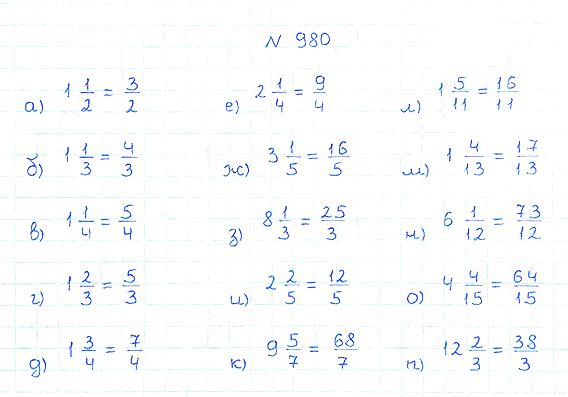 N 980
а) 1 1/2 = 3/2
б) 1 1/3 = 4/3
в) 1 1/4 = 5/4
г) 1 2/3 = 5/3
д) 1 3/4 = 7/4
е) 2 1/4 = 9/4
ж) 3 1/5 = 16/5
з) 8 1/3 = 25/3
и) 2 2/5 = 12/5
к) 9 5/7 = 68/7
л) 1 5/11 = 16/11
м) 1 4/13 = 17/13
н) 6 1/12 = 73/12
о) 4 4/15 = 64/15
п) 12 2/3 = 38/3